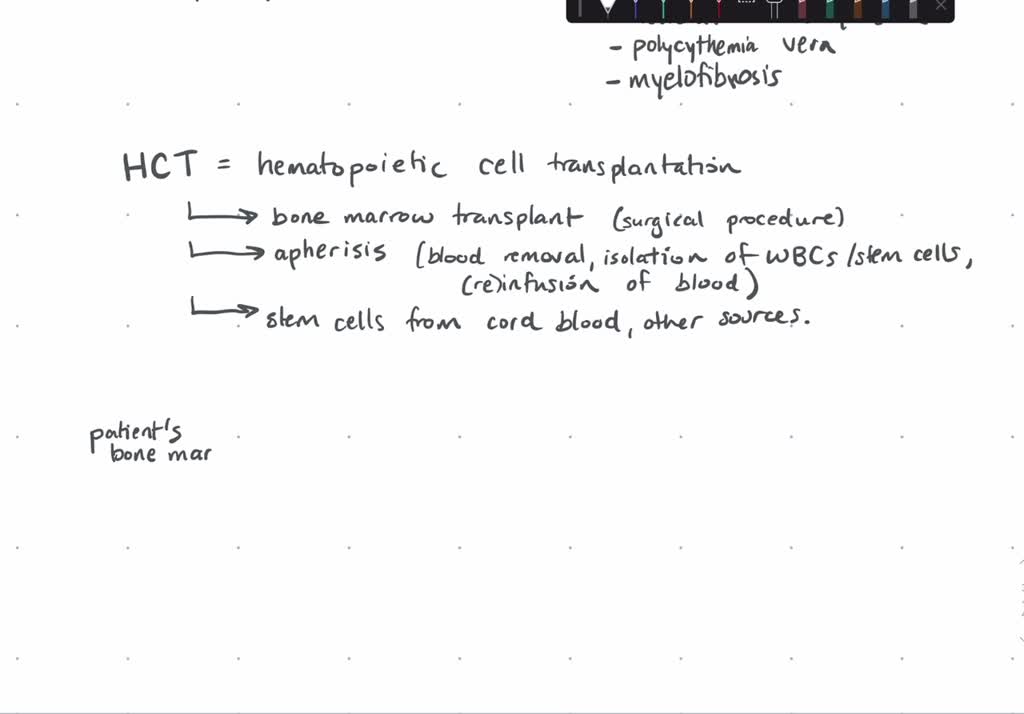 - polycythemia vera
- myelofibrosis
HCT = hematopoietic cell transplantation
bone marrow transplant (surgical procedure)
apherisis (blood removal, isolation of WBCs/stem cells,
(re)infusion of blood)
stem cells from cord blood, other sources.
patient's
bone mar